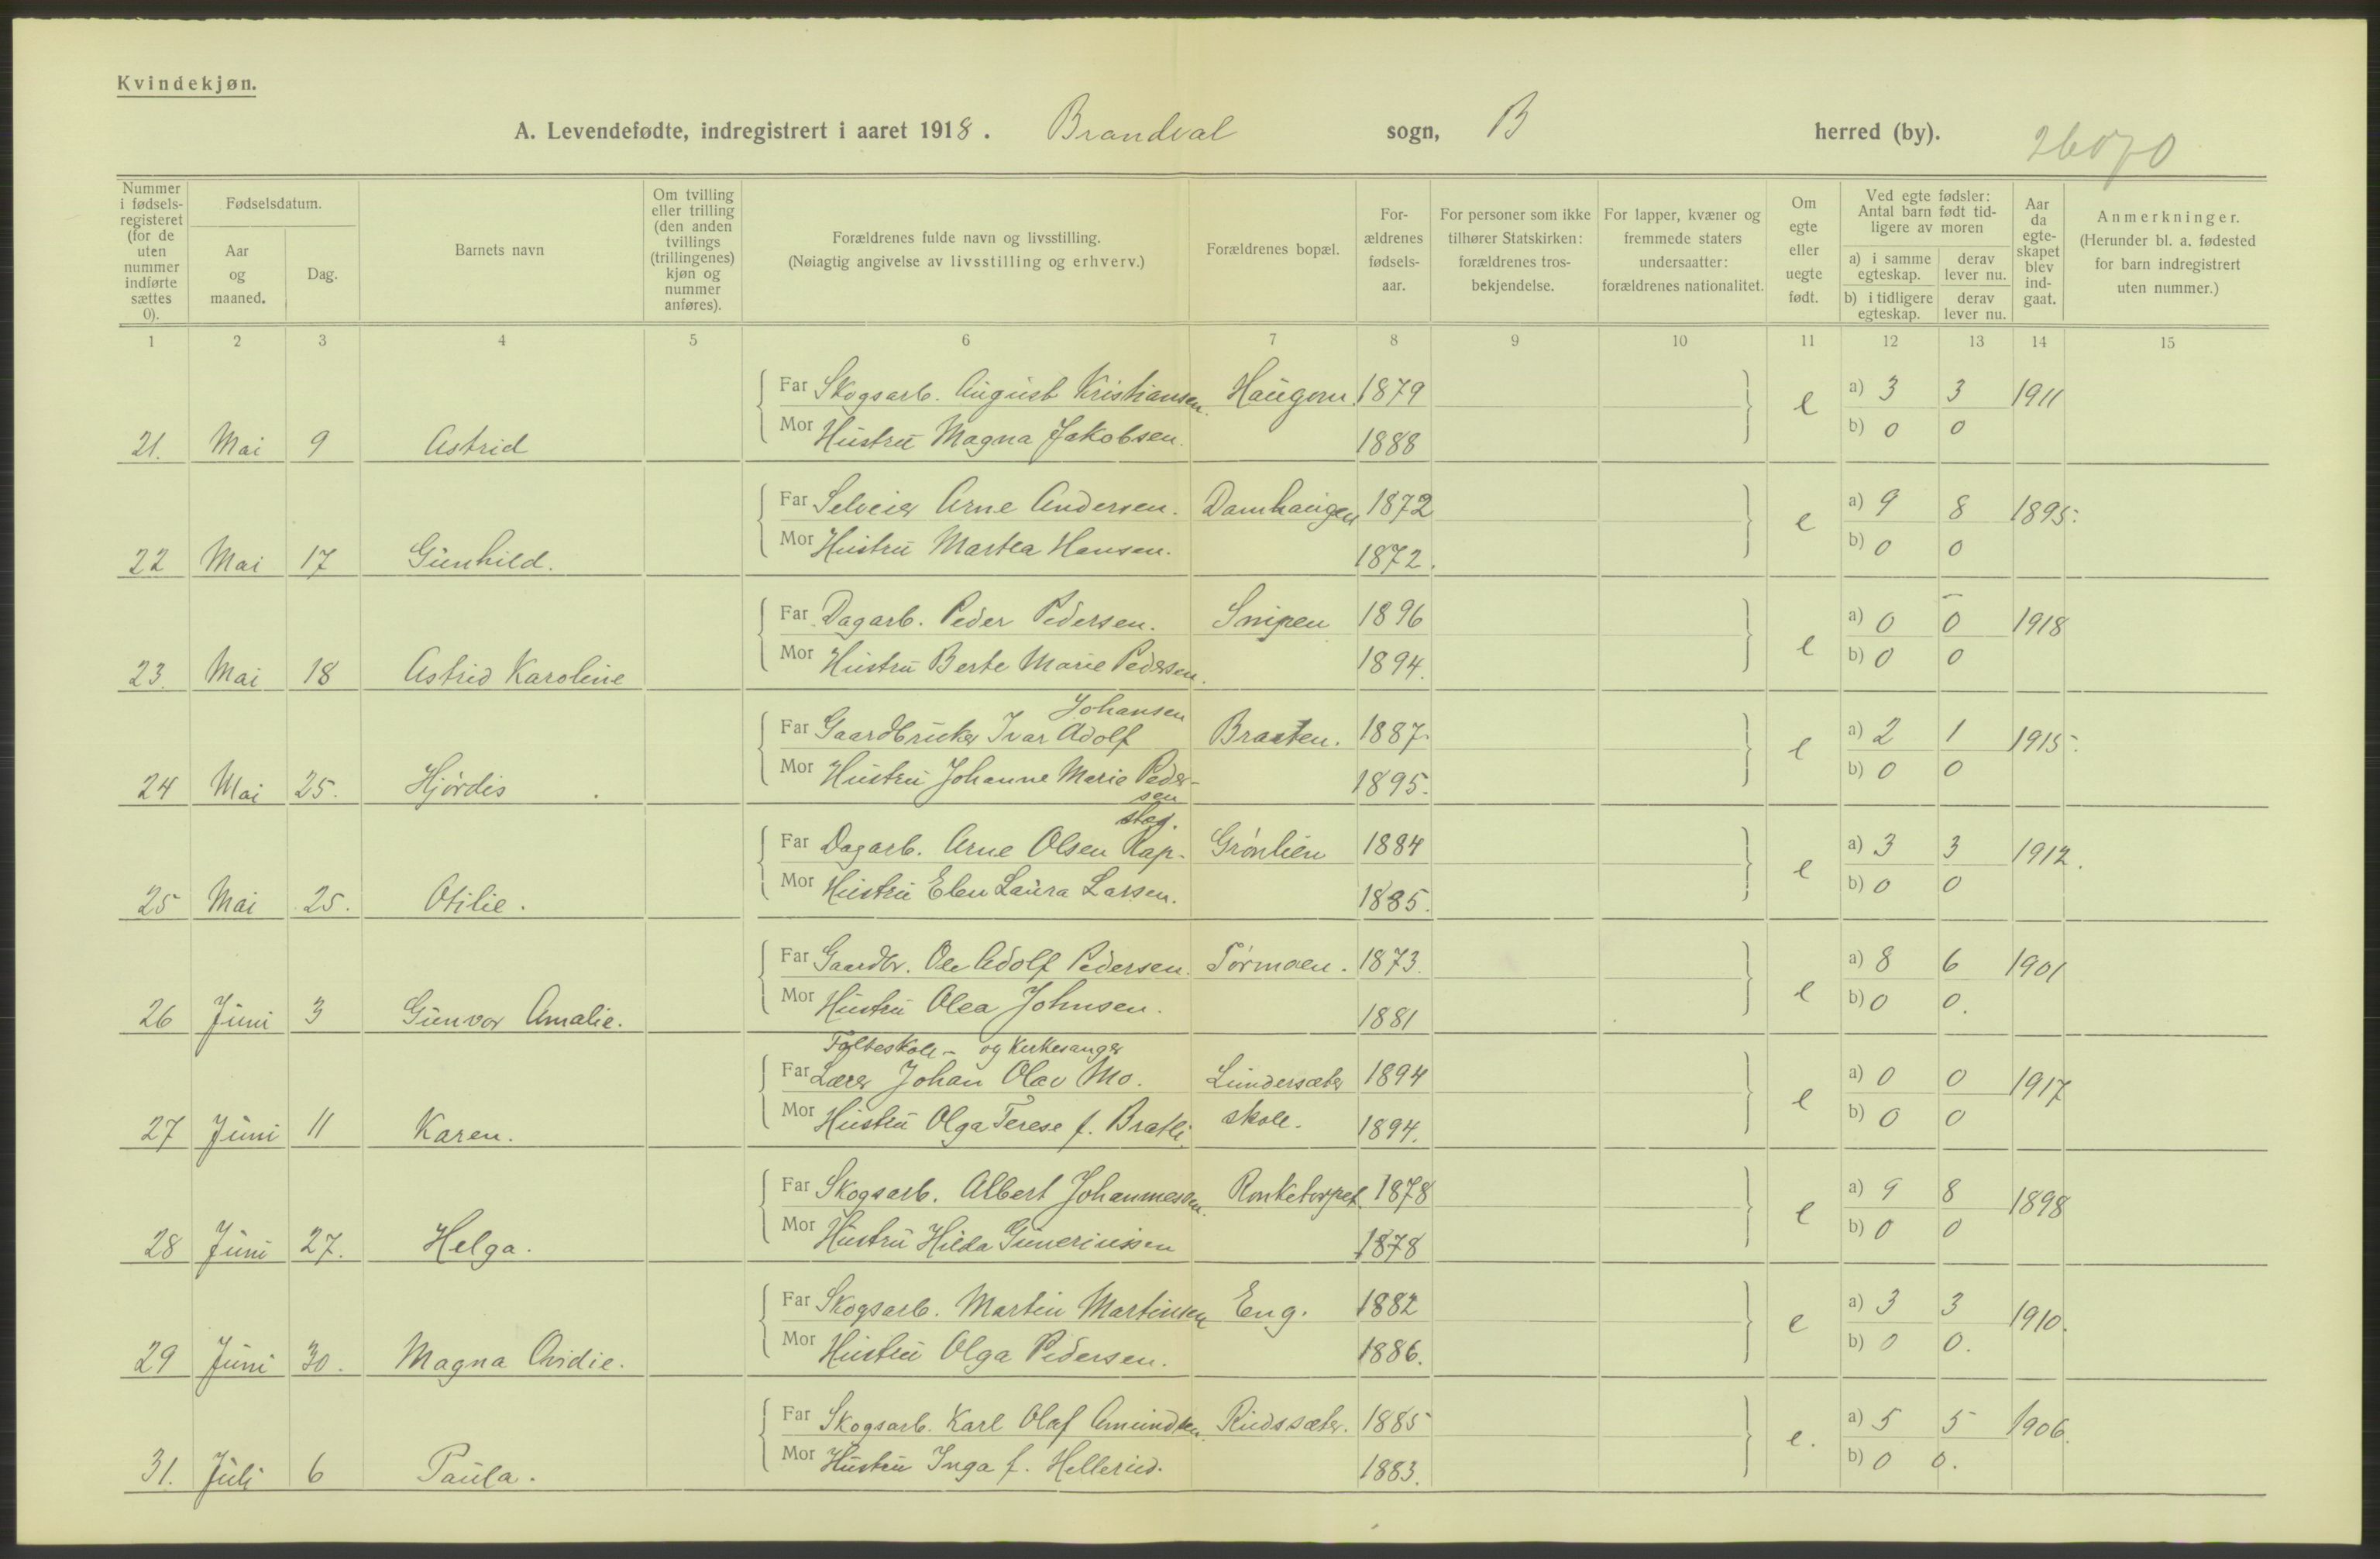 Kvindekjøn.
A. Levendefødte, indregistrert i aaret 1918. Brandval sogn, B herred (by). 26070
Nummer i fødsels-registeret (for de uten nummer indførte sættes 0).
Fødselsdatum.
Aar og maaned.
Dag.
Barnets navn
Om tvilling eller trilling (den anden tvillings (trillingenes) kjøn og nummer anføres).
Forældrenes fulde navn og livsstilling.
(Nøiagtig angivelse av livsstilling og erhverv.)
Forældrenes bopæl.
For-ældrenes fødsels-aar.
For personer som ikke tilhører Statskirken: forældrenes tros-bekjendelse.
For lapper, kvæner og fremmede staters undersaatter: forældrenes nationalitet.
Om egte eller uegte født.
Ved egte fødsler: Antal barn født tid-ligere av moren
a) i samme egteskap.
derav lever nu.
b) i tidligere egteskap.
derav lever nu.
Aar da egte-skapet blev ind-gaat.
Anmerkninger.
(Herunder bl. a. fødested for barn indregistrert uten nummer.)
1 2 3 4 5 6 7 8 9 10 11 12 13 14 15
Far Skogsarb. August Kristiansen. Haugom. 1879 e a) 3 3 1911
Mor Hustru Magna Jakobsen. 1888 b) 0 0
21. Mai 9 Astrid
Far Selveier Arne Andersen. Damhaugen 1872 e a) 9 8 1895.
Mor Hustru Martea Hansen. 1872. b) 0 0
22 Mai 17 Gunhild.
Far Dagarb. Peder Pedersen. Snipen 1896 e a) 0 0 1918
Mor Hustru Berte Marie Pedersen. 1894. b) 0 0
23. Mai 18 Astrid Karoline
Johansen
Far Gaardbruker Ivar Adolf Braaten. 1887. e a) 2 1 1915.
Mor Hustru Johanne Marie Peder- 1895. b) 0 0
24 Mai 25. Hjørdis
sen
stad.
Far Dagarb. Arne Olsen Kap- Grønlien 1884 e a) 3 3 1912.
Mor Hustru Elen Laura Larsen. 1885. b) 0 0
25 Mai 25. Otilie.
Far Gaardbr. Ole Adolf Pedersen. Tørmoen. 1873. e a) 8 6 1901
Mor Hustru Olea Johnsen. 1881 b) 0 0.
26 Juni 3 Gunvor Amalie.
Folkeskole- og Kirkesanger
Far Lærer Johan Olav Mo. Lundersæter 1894 e a) 0 0 1917
Mor Hustru Olga Terese f. Bratli. skole. 1894. b) 0 0
27 Juni 11 Karen.
Far Skogsarb. Albert Johannesen. Ronketorpet. 1878 e a) 9 8 1898
Mor Hustru Hilda Guneriussen 1878 b) 0 0
28 Juni 27. Helga.
Far Skogsarb. Martin Martinsen Eng. 1882 e a) 3 3 1910.
Mor Hustru Olga Pedersen. 1886. b) 0 0.
29 Juni 30. Magna Ovidie.
Far Skogsarb. Karl Olaf Amundsen. Rudssæter. 1885 e. a) 5 5 1906.
Mor Hustru Inga f. Hellerud. 1883. b) 0 0.
31. Juli 6 Paula.